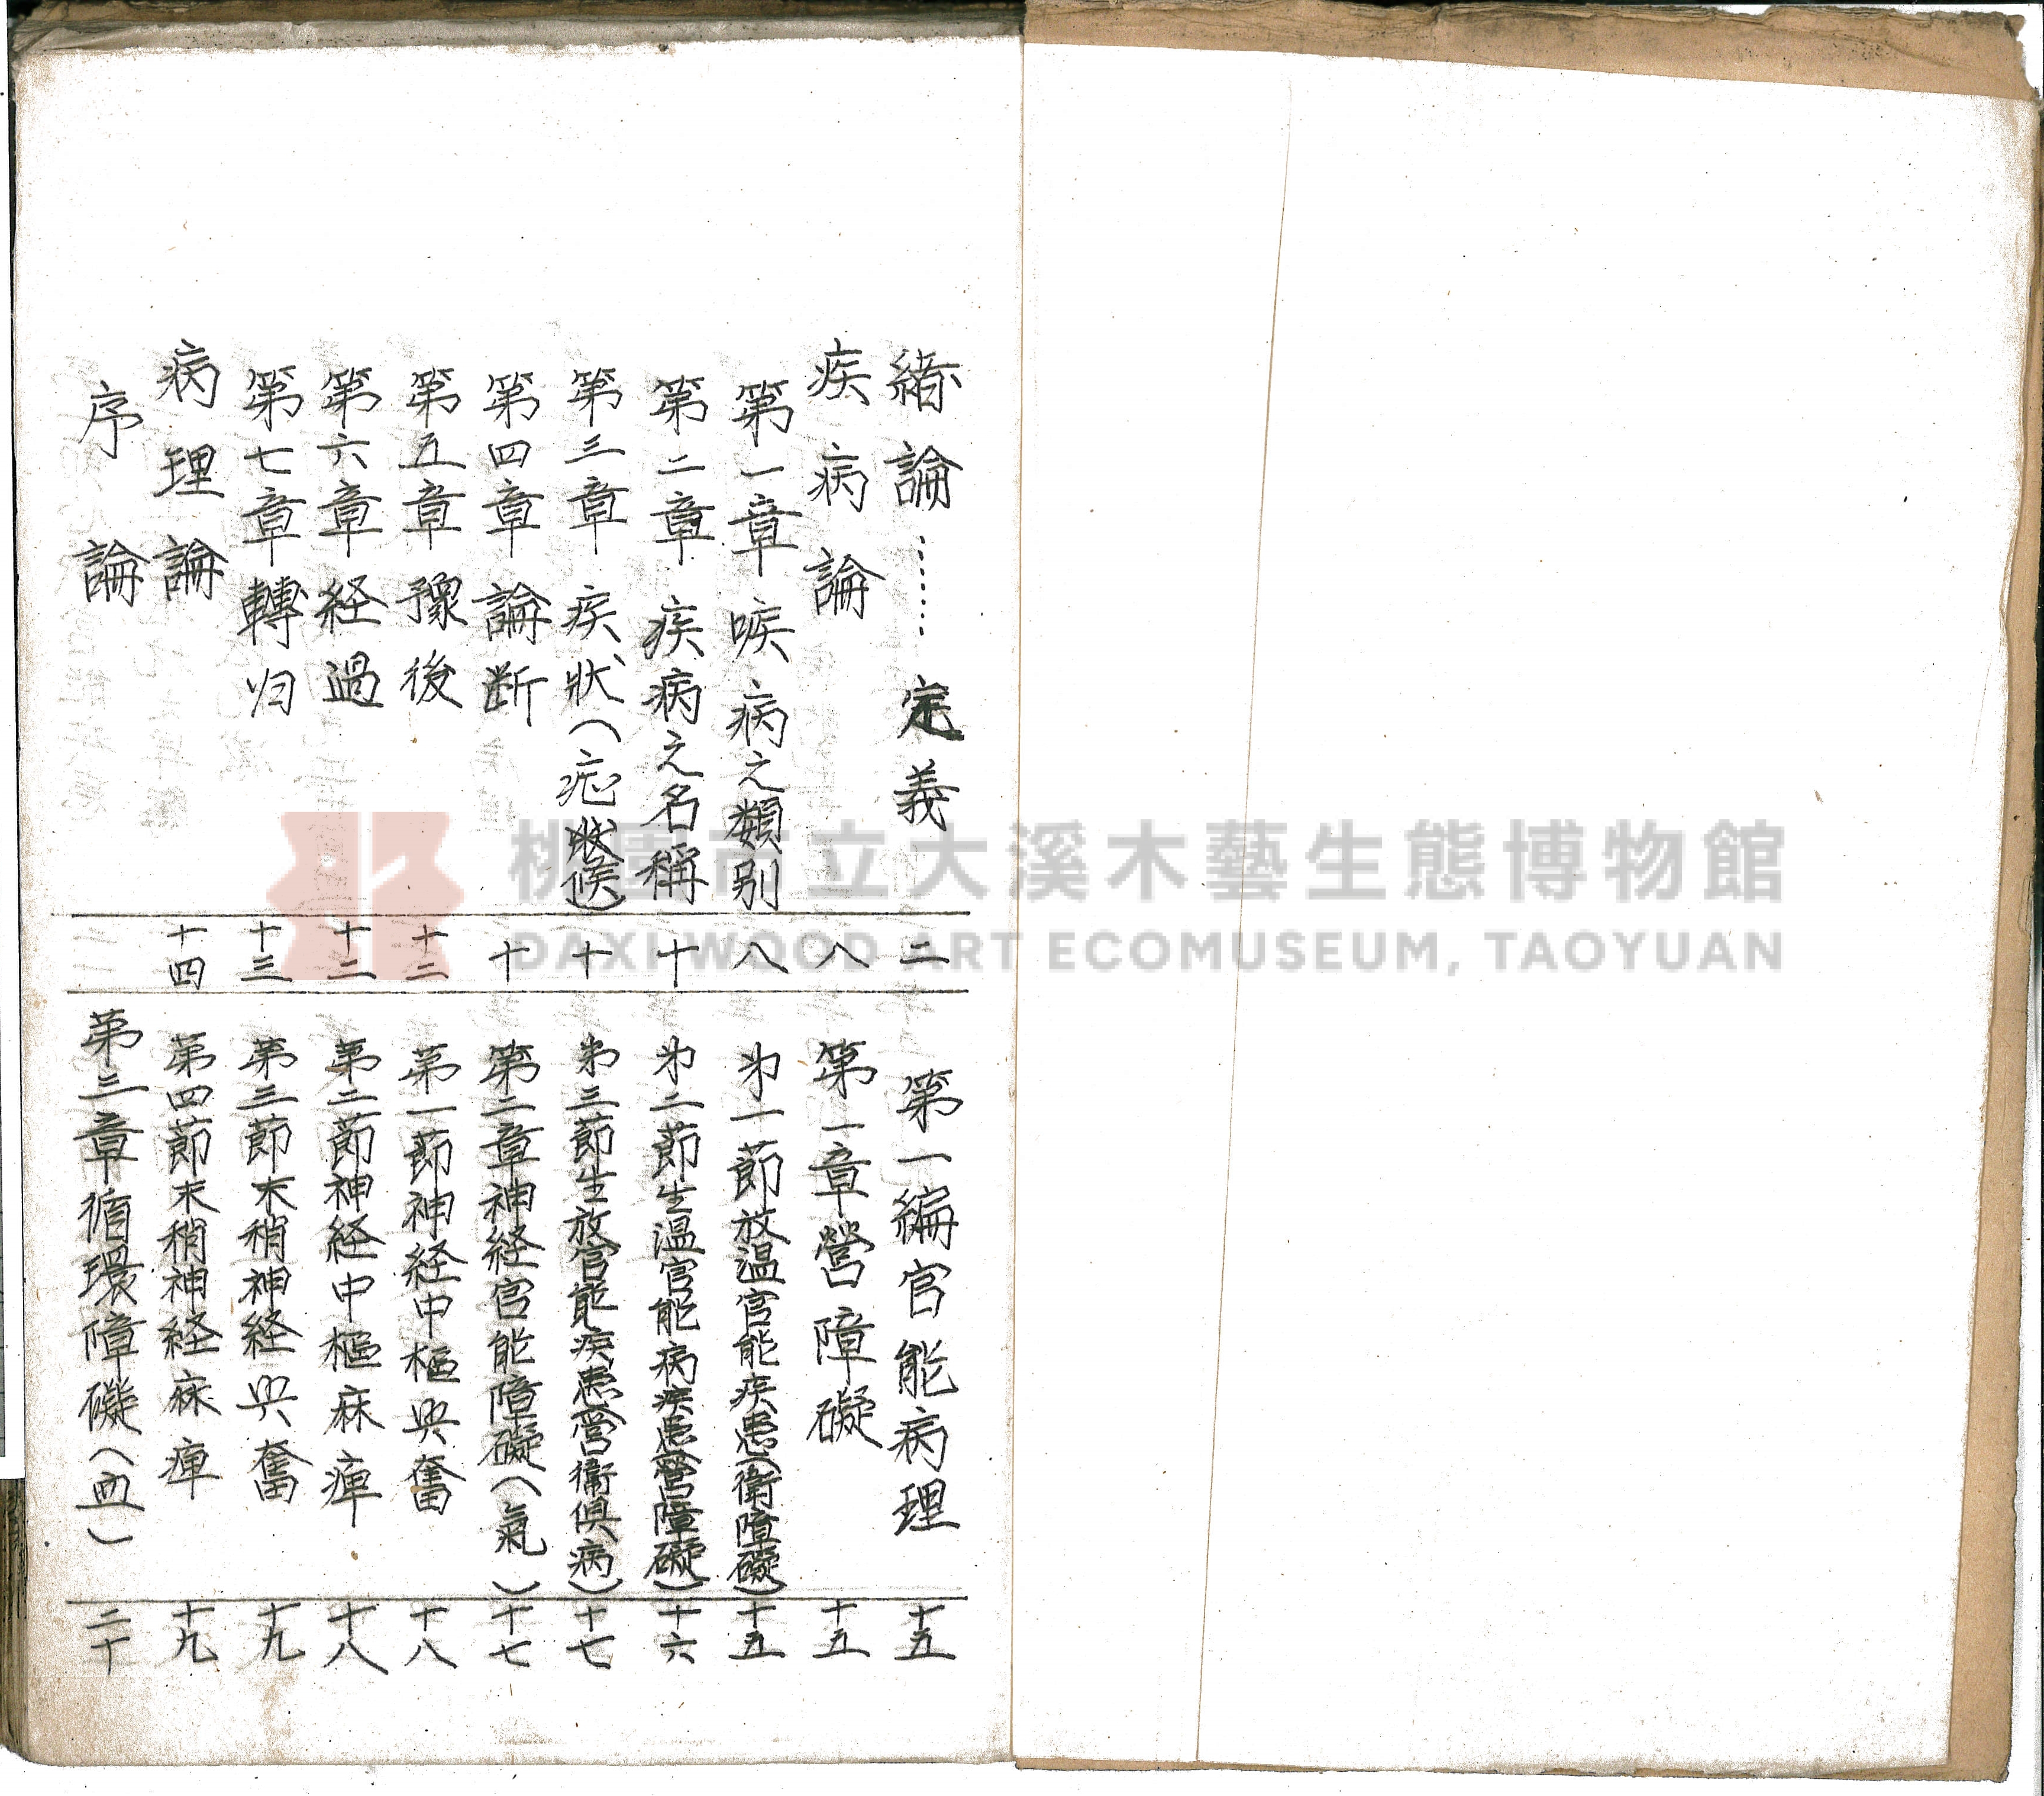 緒論……定義 二
疾病論 八
第一章 㾨病之類别 八
第二章 疾病之名稱 十
第三章 疾狀(症候) 十
第四章 論断 十
第五章 豫後 十二
第六章 経過 十二
第七章 轉归 十三
病理論 十四
序論
第一編官能病理 十五
第一章營障礙 十五
第一節放温官能疾患(衛障礙) 十五
第二節生温官能病疾患(營障礙) 十六
第三節生放官能疾患(營衛俱病) 十七
第二章神経官能障礙(氣) 十七
第一節神経中樞興奮 十八
第二節神経中樞麻痺 十八
第三節末稍神経興奮 十九
第四節末稍神経麻痺 十九
第三章循環障礙(血) 二十
桃園市立大溪木藝生態博物館
DAXI WOOD ART ECOMUSEUM, TAOYUAN